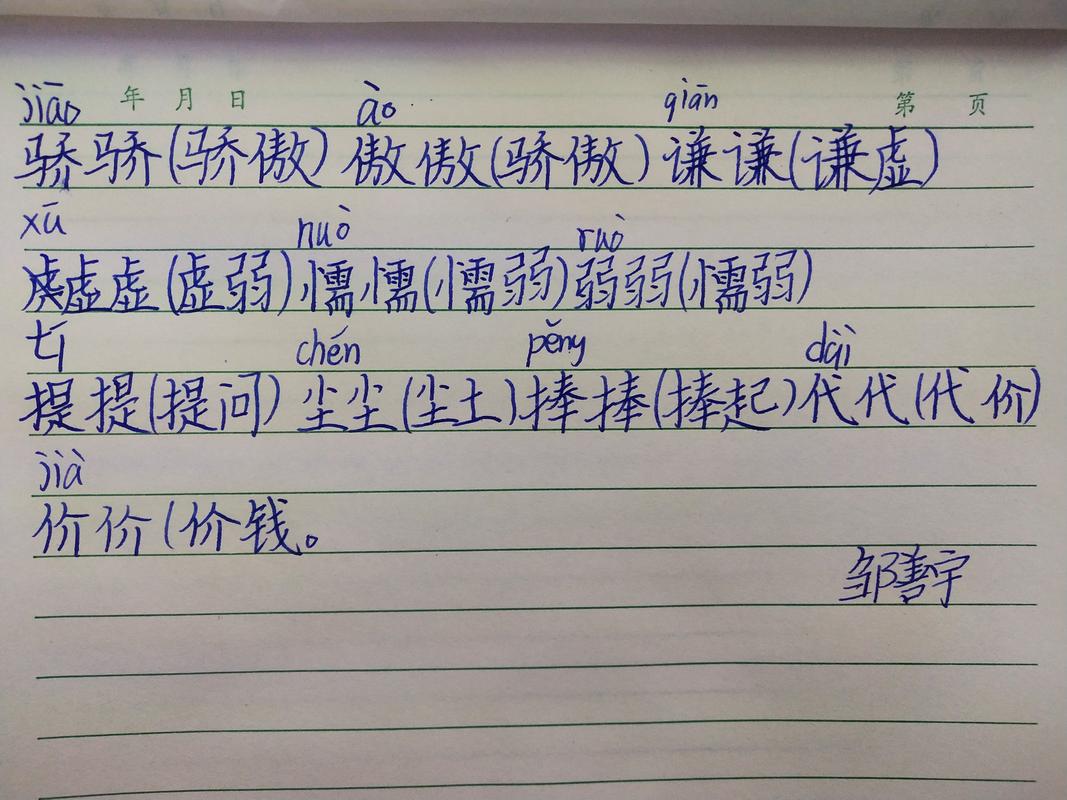 年 月 日 第 页
jiāo ào qiān
骄骄(骄傲) 傲傲(骄傲) 谦谦(谦虚)
xū nuò ruò
虚虚(虚弱)懦懦(懦弱)弱弱(懦弱)
tí chén pěng dài
提提(提问) 尘尘(尘土)捧捧(捧起)代代(代价)
jià
价价(价钱。
邹善宇